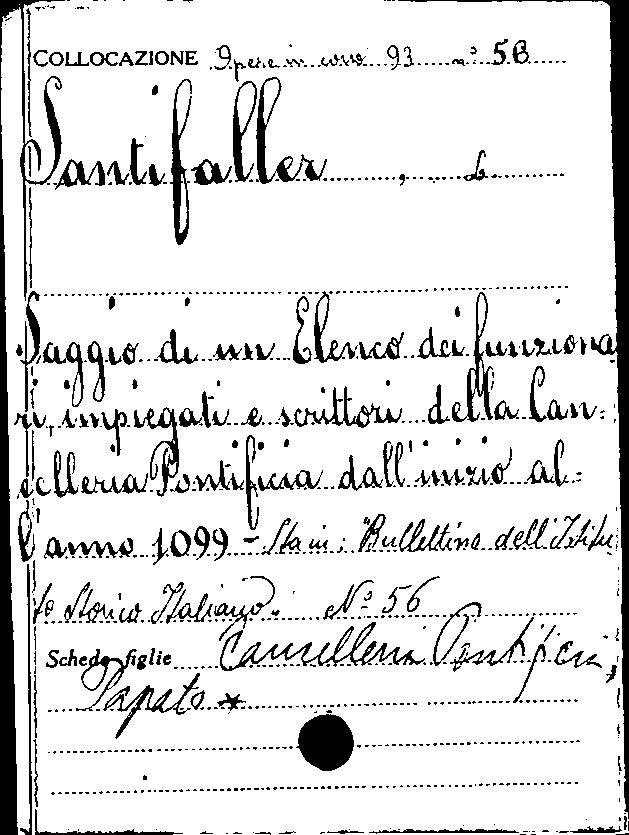 COLLOCAZIONE Opere in corso 93 n° 56
Santifaller, L.
Saggio di un Elenco dei funziona
ri, impiegati e scrittori della Can=
celleria Pontificia dall'inizio al=
l'anno 1099 - Sta in: Bullettino dell'Istitu
to Storico Italiano. N° 56
Schede figlie Cancelleria Pontificia,
Papato *